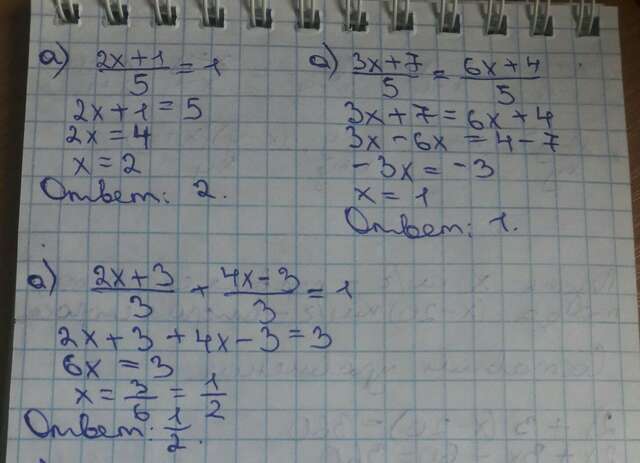 а) (2x+1)/5 = 1
2x+1 = 5
2x = 4
x = 2
Ответ: 2.
а) (3x+7)/5 = (6x+4)/5
3x+7 = 6x+4
3x-6x = 4-7
-3x = -3
x = 1
Ответ: 1.
а) (2x+3)/3 + (4x-3)/3 = 1
2x+3+4x-3=3
6x = 3
x = 3/6 = 1/2
Ответ: 1/2.